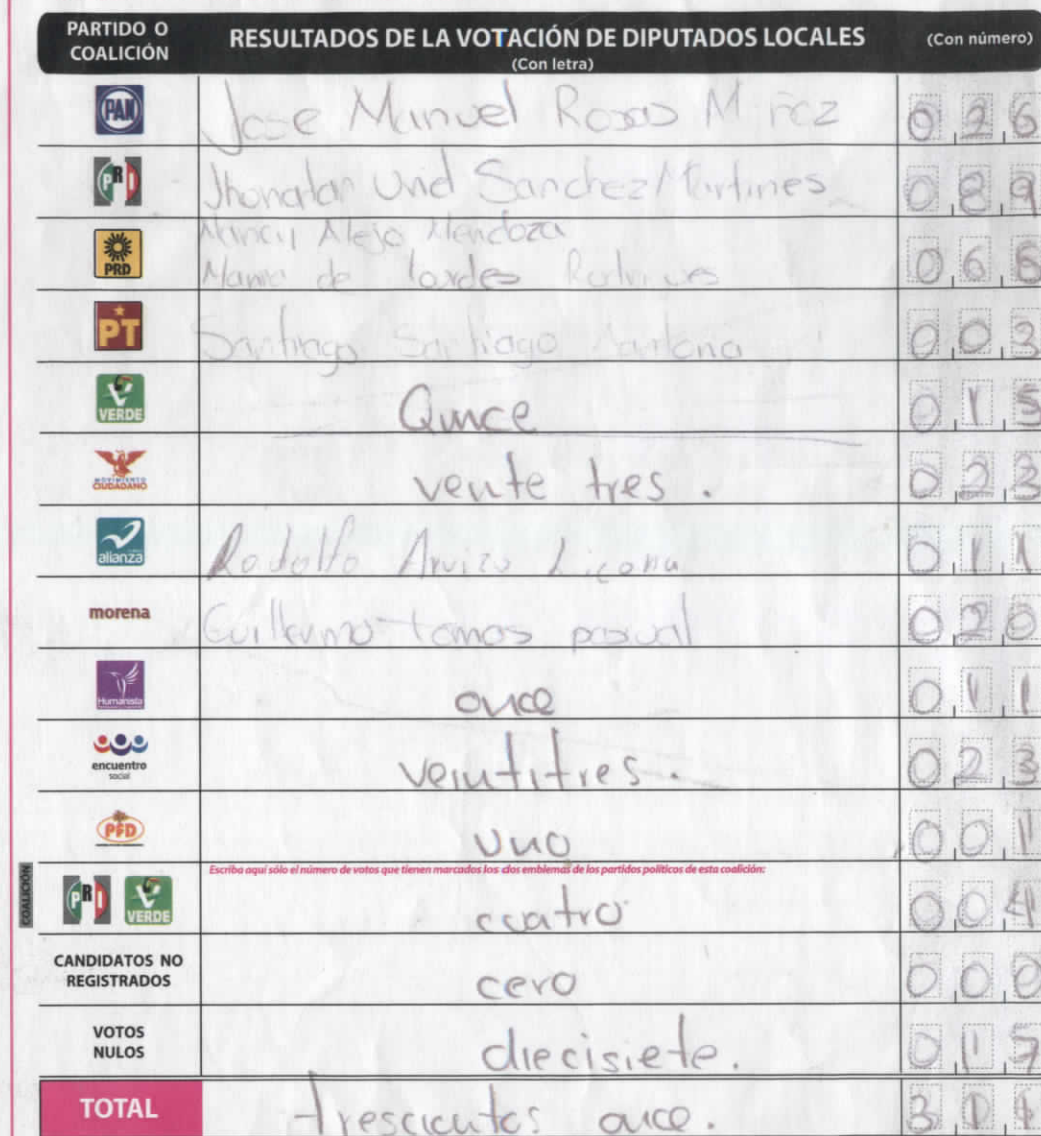 PARTIDO O COALICIÓN RESULTADOS DE LA VOTACIÓN DE DIPUTADOS LOCALES (Con letra) (Con número)
PAN Jose Manuel Rosas 0 2 6
PRI Jhonatan Uriel Sanchez Martines 0 8 9
Nancy Alejo Mendoza
PRD Maria de lourdes Rodrigues 0 6 6
PT Santiago Santiago 0 0 3
VERDE Quince 0 1 5
MOVIMIENTO CIUDADANO vente tres. 0 2 3
alianza Rodolfo Arvizu Licona 0 1 1
morena Guillermo tomas pascual 0 2 0
Humanista once 0 1 1
encuentro social veintitres. 0 2 3
PFD uno 0 0 1
Escriba aquí sólo el número de votos que tienen marcados los dos emblemas de los partidos políticos de esta coalición:
COALICIÓN PRI VERDE cuatro 0 0 4
CANDIDATOS NO REGISTRADOS cero 0 0 0
VOTOS NULOS diecisiete. 0 1 7
TOTAL trescientos once. 3 1 1